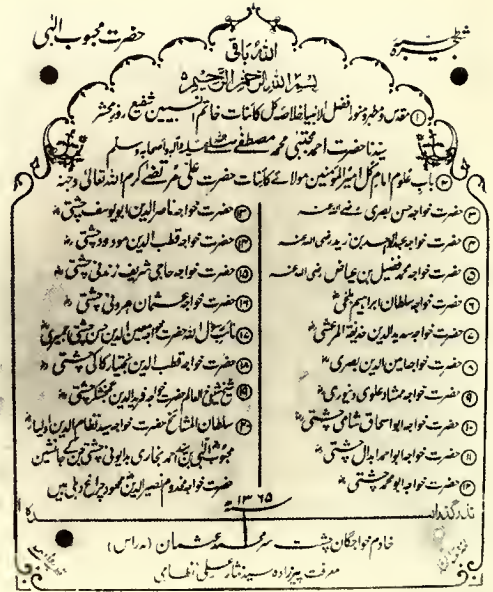 شجرہ طیبہ
حضرت محبوب الٰہی
اللہ باقی
بسم اللہ الرحمن الرحیم
① مقدس و مطہر و منور افضل الانبیا خلاصہ کل کائنات خاتم النبیین شفیع روز محشر
سیدنا حضرت احمد مجتبیٰ محمد مصطفےٰ صلی اللہ علیہ وآلہ واصحابہ وسلم
② باب علوم امام کل امیر المومنین مولائے کائنات حضرت علی مرتضےٰ کرم اللہ تعالیٰ وجہہ
③ حضرت خواجہ حسن بصری رضی اللہ عنہ
④ حضرت خواجہ عبدالواحد بن زید رضی اللہ عنہ
⑤ حضرت خواجہ محمد فضیل بن عیاض رضی اللہ عنہ
⑥ حضرت خواجہ سلطان ابراہیم بلخیؒ
⑦ حضرت خواجہ سدید الدین حذیفۃ المرعشیؒ
⑧ حضرت خواجہ امین الدین بصریؒ
⑨ حضرت خواجہ ممشاد علوی دنیوریؒ
⑩ حضرت خواجہ ابو اسحاق شامی چشتیؒ
⑪ حضرت خواجہ ابو احمد ابدال چشتیؒ
⑫ حضرت خواجہ ابو محمد چشتیؒ
⑬ حضرت خواجہ ناصر الدین ابو یوسف چشتیؒ
⑭ حضرت خواجہ قطب الدین مودود چشتیؒ
⑮ حضرت خواجہ حاجی شریف زندنی چشتیؒ
⑯ حضرت خواجہ عثمان ہرونی چشتیؒ
⑰ نائب رسول اللہ حضرت خواجہ معین الدین حسن چشتی اجمیریؒ
⑱ حضرت خواجہ قطب الدین بختیار کاکی چشتیؒ
⑲ شیخ شیوخ العالم حضرت خواجہ فرید الدین گنجشکر چشتیؒ
⑳ سلطان المشائخ حضرت خواجہ سید نظام الدین اولیاؒ
محبوب الٰہی بن سید احمد بخاری بدایونی چشتی جن کے جانشین
حضرت خواجہ مخدوم نصیر الدین محمود چراغ دہلی ہیں
۱۳۶۵
نذر گذرانندہ
خادم خواجگان چشت سر محمد عثمان (مدراس)
معرفت پیرزادہ سید نثار علی نظامی